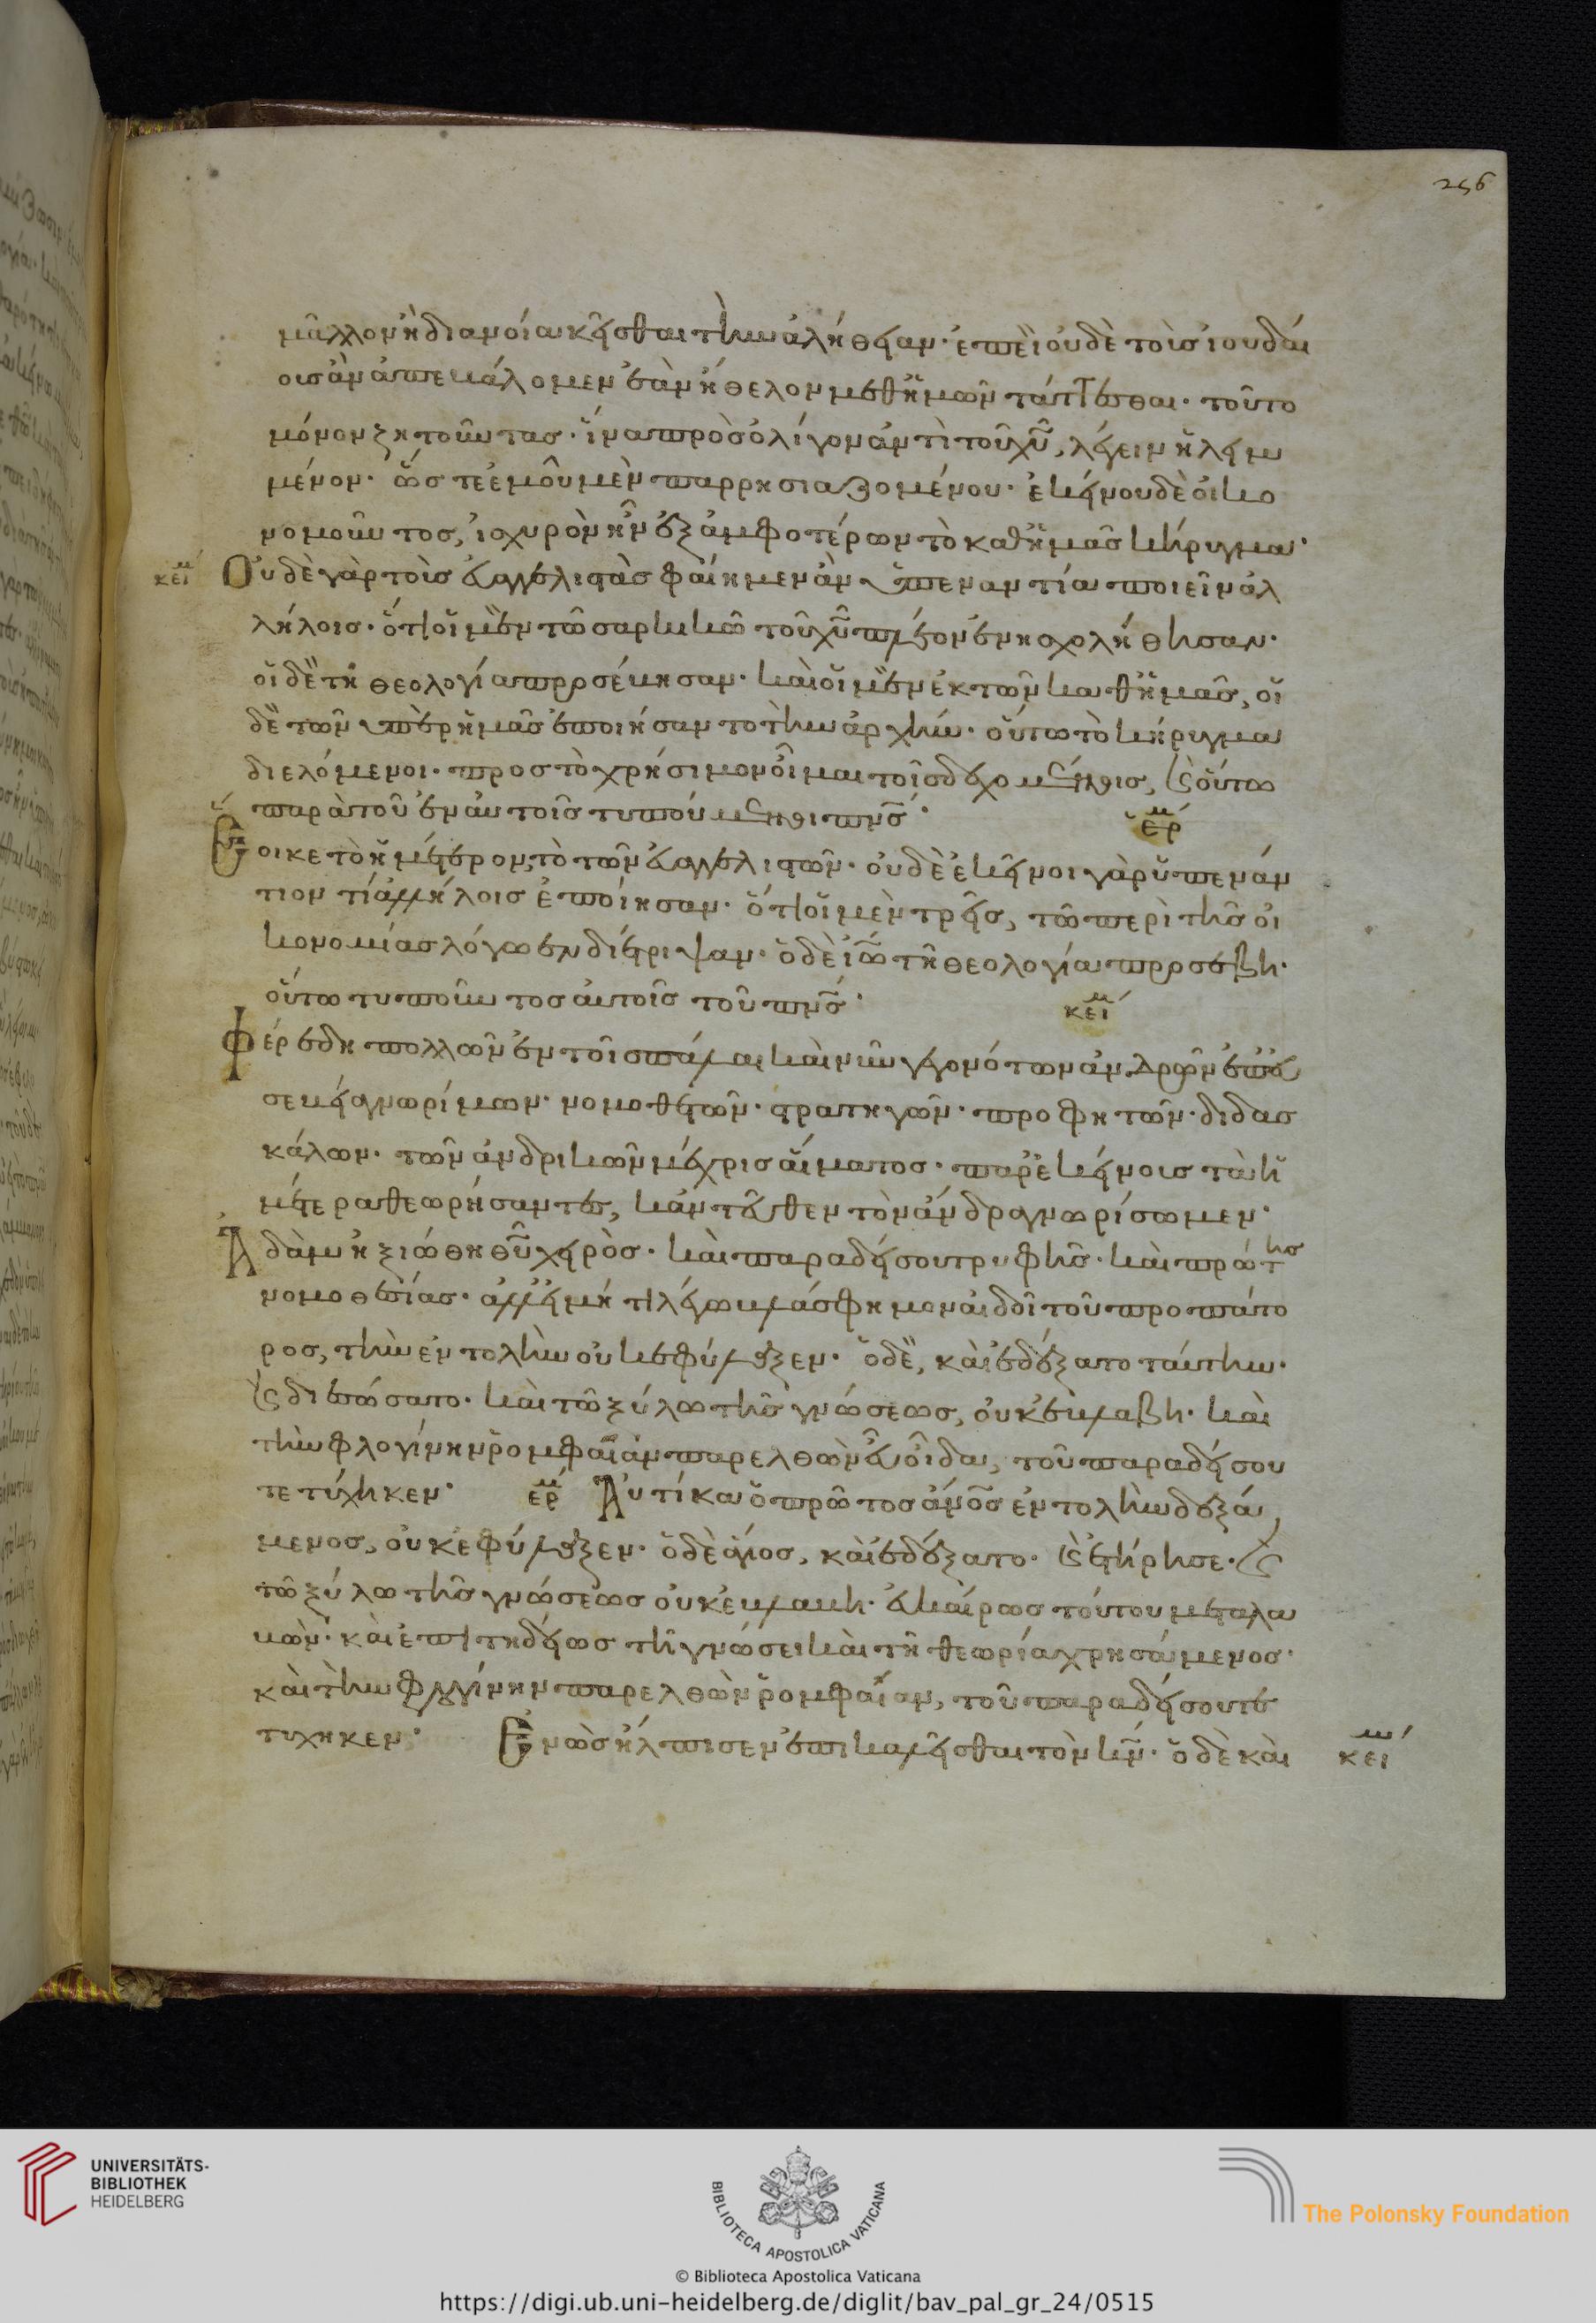 256
μᾶλλον ἢ διανοία κεῖσθαι τὴν ἀλήθειαν· ἐπεὶ οὐδὲ τοῖς ἰουδαί
οις ἂν ἀπεβάλομεν ἐὰν ἤθελον μεθ' ἡμῶν τάττεσθαι· τοῦτο
μόνον ζητοῦντας· ἵνα πρὸς ὀλίγον ἀντὶ τοῦ χῦ, λέγειν ἠλειμ
μένον· ὥστε ἐμοῦ μὲν παρρησιαζομένου· ἐκείνου δὲ οἰκο
νομοῦντος, ἰσχυρὸν ἦν ἐξ ἀμφοτέρων τὸ καθ' ἡμᾶς κήρυγμα·
κεί Οὐδὲ γὰρ τοὺς εὐαγγελιστὰς φαίημεν ἂν ὑπεναντία ποιεῖν ἀλ
λήλοις· ὅτι οἱ μὲν τῶ σαρκικῶ τοῦ χῦ πλέον ἐνησχολήθησαν·
οἱ δὲ τῆ θεολογία προσέβησαν· καὶ οἱ μὲν ἐκ τῶν καθ' ἡμᾶς, οἱ
δὲ τῶν ὑπὲρ ἡμᾶς ἐποιήσαντο τὴν ἀρχήν· οὕτω τὸ κήρυγμα
διελόμενοι· προς τὸ χρήσιμον οἶμαι τοῖς δεχομένοις, καὶ οὕτω
παρὰ τοῦ ἐν αὐτοῖς τυπούμενοι πνς· ἑρ
Ἔοικε τὸ ἡμέτερον, τὸ τῶν εὐαγγελιστῶν· οὐδὲ ἐκεῖνοι γὰρ ὑπεναν
τίον τι ἀλλήλοις ἐποίησαν· ὅτι οἱ μὲν τρεῖς, τῶ περὶ τῆς οἰ
κονομίας λόγω ἐνδιέτριψαν· ὁ δὲ ἰω τῆ θεολογία προσέβη·
οὕτω τυποῦντος αὐτοῖς τοῦ πνς· κεί
Φέρε δὴ πολλῶν ἐν τοῖς πάλαι καὶ νῦν γεγονότων ἀνδρῶν ἐπ' εὐ
σεβεία γνωρίμων· νομοθετῶν· στρατηγῶν· προφητῶν· διδασ
κάλων· τῶν ἀνδρικῶν μέχρις αἵματος· παρ' ἐκείνοις τὰ ἡ
μέτερα θεωρήσαντες, κἀντεῦθεν τὸν ἄνδρα γνωρίσωμεν·
Ἀδὰμ ἠξιώθη θῦ χειρὸς· καὶ παραδείσου τρυφῆς· καὶ πρώτης
νομοθεσίας· ἀλλ' εἰ μή τι λέγω βλάσφημον αἰδοῖ τοῦ προπάτο
ρος, τὴν ἐντολὴν οὐκ ἐφύλαξεν· ὁ δὲ, καὶ ἐδέξατο ταύτην·
καὶ διεσώσατο· καὶ τῶ ξύλω τῆς γνώσεως, οὐκ ἐβλάβη· καὶ
τὴν φλογίνην ῥομφαίαν παρελθὼν εὖ οἶδα, τοῦ παραδείσου
τετύχηκεν· ἑρ Αὐτίκα ὁ πρῶτος ἄνος ἐντολὴν δεξά
μενος, οὐκ ἐφύλαξεν· ὁ δὲ ἅγιος, καὶ ἐδέξατο· καὶ ἐτήρησε· καὶ
τῶ ξύλω τῆς γνώσεως οὐκ ἐβλάβη· εὐκαίρως τούτου μεταλα
βὼν· καὶ ἐπιτηδείως τῆ γνώσει καὶ τῆ θεωρία χρησάμενος·
καὶ τὴν φλογίνην παρελθὼν ῥομφαίαν, τοῦ παραδείσου τε
τυχηκεν· Ἐνὼς ἤλπισεν ἐπικαλεῖσθαι τὸν κν· ὁ δὲ καὶ κεί
UNIVERSITÄTS-
BIBLIOTHEK
HEIDELBERG
BIBLIOTECA APOSTOLICA VATICANA
The Polonsky Foundation
© Biblioteca Apostolica Vaticana
https://digi.ub.uni-heidelberg.de/diglit/bav_pal_gr_24/0515